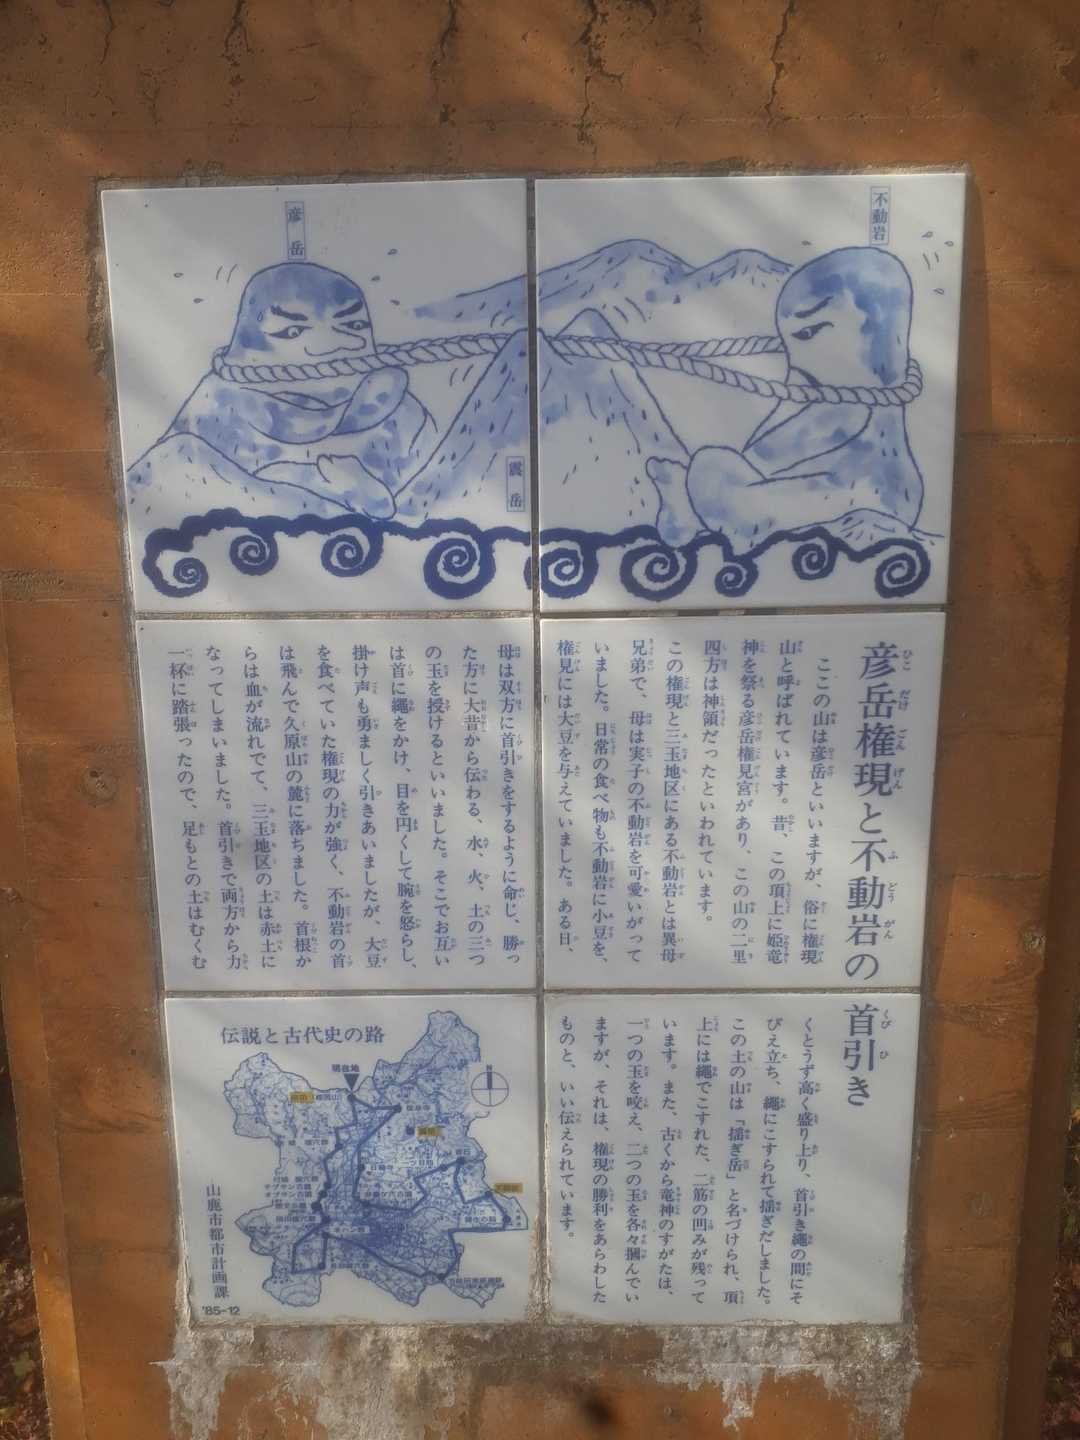 不動岩
彦岳
震岳
彦岳権現と不動岩の首引き
ここの山は彦岳といいますが、俗に権現
山と呼ばれています。昔、この頂上に姫竜
神を祭る彦岳権見宮があり、この山の二里
四方は神領だったといわれています。
この権現と三玉地区にある不動岩とは異母
兄弟で、母は実子の不動岩を可愛いがって
いました。日常の食べ物も不動岩に小豆を、
権見には大豆を与えていました。ある日、
母は双方に首引きをするように命じ、勝っ
た方に大昔から伝わる、水、火、土の三つ
の玉を授けるといいました。そこでお互い
は首に縄をかけ、目を円くして腕を怒らし、
掛け声も勇ましく引きあいましたが、大豆
を食べていた権現の力が強く、不動岩の首
は飛んで久原山の麓に落ちました。首根か
らは血が流れでて、三玉地区の土は赤土に
なってしまいました。首引きで両方から力
一杯に踏張ったので、足もとの土はむくむ
くとうず高く盛り上り、首引き縄の間にそ
びえ立ち、縄にこすられて揺ぎだしました。
この土の山は「揺ぎ岳」と名づけられ、頂
上には縄でこすれた、二筋の凹みが残って
います。また、古くから竜神のすがたは、
一つの玉を咬え、二つの玉を各々摑んでい
ますが、それは、権現の勝利をあらわした
ものと、いい伝えられています。
伝説と古代史の路
現在地
N
山鹿市都市計画課
'85-12